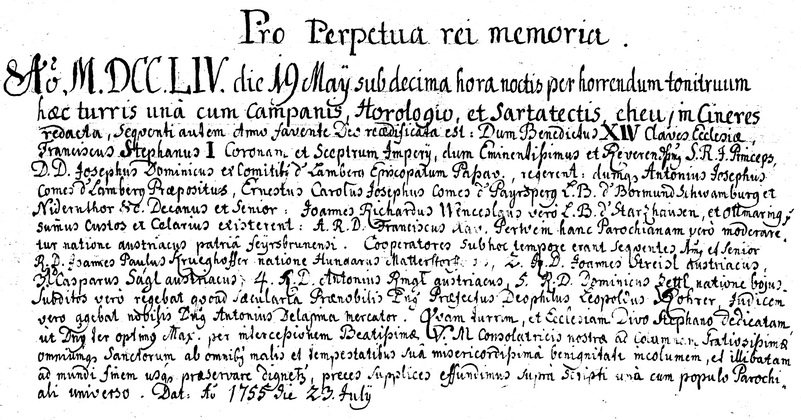 Pro Perpetua rei memoria .
Aō. M.DCC.LIV. die 19 Maÿ sub decima hora noctis per horrendum tonitruum
hæc turris unà cum Campanis, Horologio, et Sartatectis, eheu, in Cineres
redacta, Sequenti autem Anno favente Deo reædificata est : Dum Benedictus XIV Claves Ecclesiæ,
Franciscus Stephanus I Coronam et Sceptrum Imperÿ, dum Eminentissimus et S.R.I. Princeps,
D.D. Josephus Dominicus ex Comitib9 d Lamberg Episcopatum Passav. regerent : Antonius Josephus
Comes d Lamberg Præpositus, Ernestus Carolus Josephus Comes d L.B. d et
Nidernthor &c. Decanus et Senior : Joannes Richardus Wenceslaus vero L.B. d Starzhausen, et
sum̄us Custos et Celarius existerent : A.R.D. Franciscus Perwein hanc Parochianam vero moderare-
tur natione austriacus patriâ . Cooperatores sub hoc tempore erant Sequentes et Senior
R.D. Joannes Paulus natione Hungarus 2. R.D. Joannes Streisl austriacus,
Casparus Sagl austriacus, 4. R.D. Antonius austriacus, 5. R.D. Dominicus natione bojus.
Subditos vero regebat quoad Sæcularia Prænobilis Præfectus Deophilus Leopoldus Judicem
vero agebat nobilis Antonius Delasma mercator . Quam turrim, et Ecclesiam Divo Stephano dedicatam,
ut optim9 Max. per intercessionem Beatissimæ V. M Consolatricis nostræ
omniumq Sanctorum ab omnib9 malis et tempestatibus suâ misericordissimâ benignitate incolumem, et illibatam
ad mundi finem usq præservare preces supplices effundimus suprà scripti unà cum populo Parochi-
ali universo . Dat: Aō 1755 die 23 July